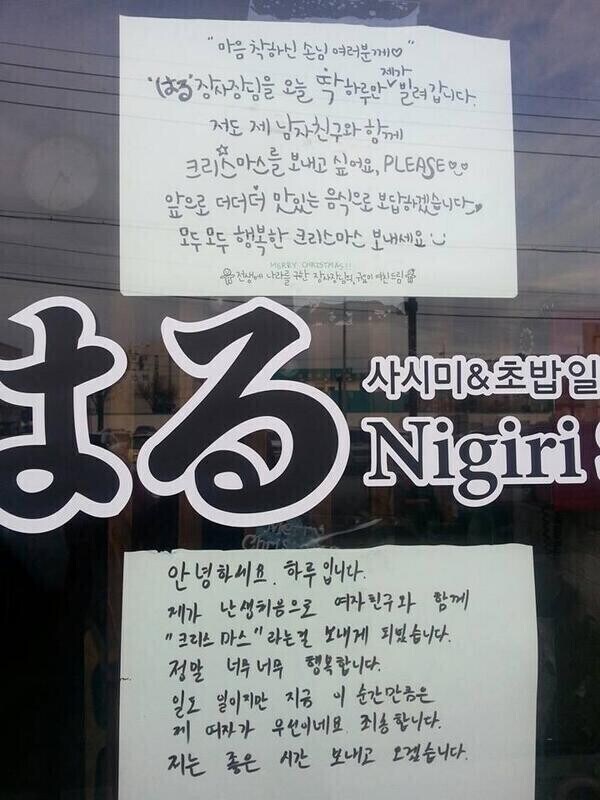 "마음 착하신 손님 여러분께♡"
'はる' 장사장님을 오늘 딱 하루만 제가 빌려갑니다.
저도 제 남자친구와 함께
크리스마스를 보내고 싶어요, PLEASE
앞으로 더더더 맛있는 음식으로 보답하겠습니다
모두모두 행복한 크리스마스 보내세요
MERRY CHRISTMAS!!
전생에 나라를 구한 장사장님의 여친드림
はる
사시미&초밥일
Nigiri
Merry
안녕하세요. 하루입니다.
제가 난생처음으로 여자친구와 함께
"크리스마스"라는걸 보내게 되었습니다.
정말 너무너무 행복합니다.
일도 일이지만 지금 이 순간만큼은
제 여자가 우선이네요. 죄송합니다.
저는 좋은 시간 보내고 오겠습니다.